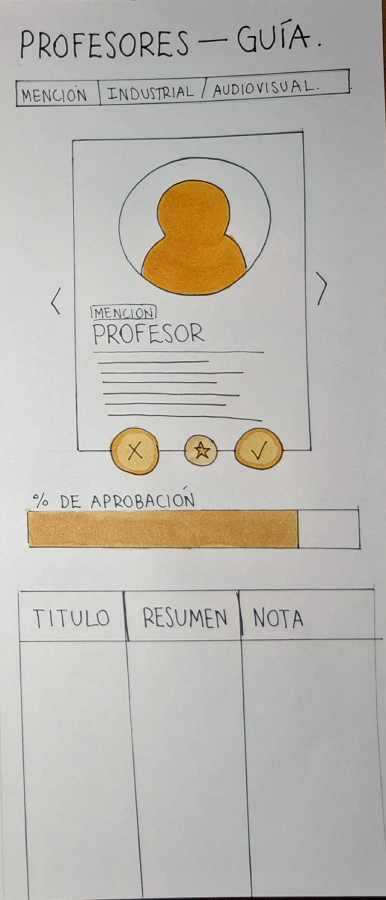 PROFESORES — GUÍA.
MENCIÓN | INDUSTRIAL / AUDIOVISUAL.
MENCION
PROFESOR
% DE APROBACIÓN
TITULO | RESUMEN | NOTA